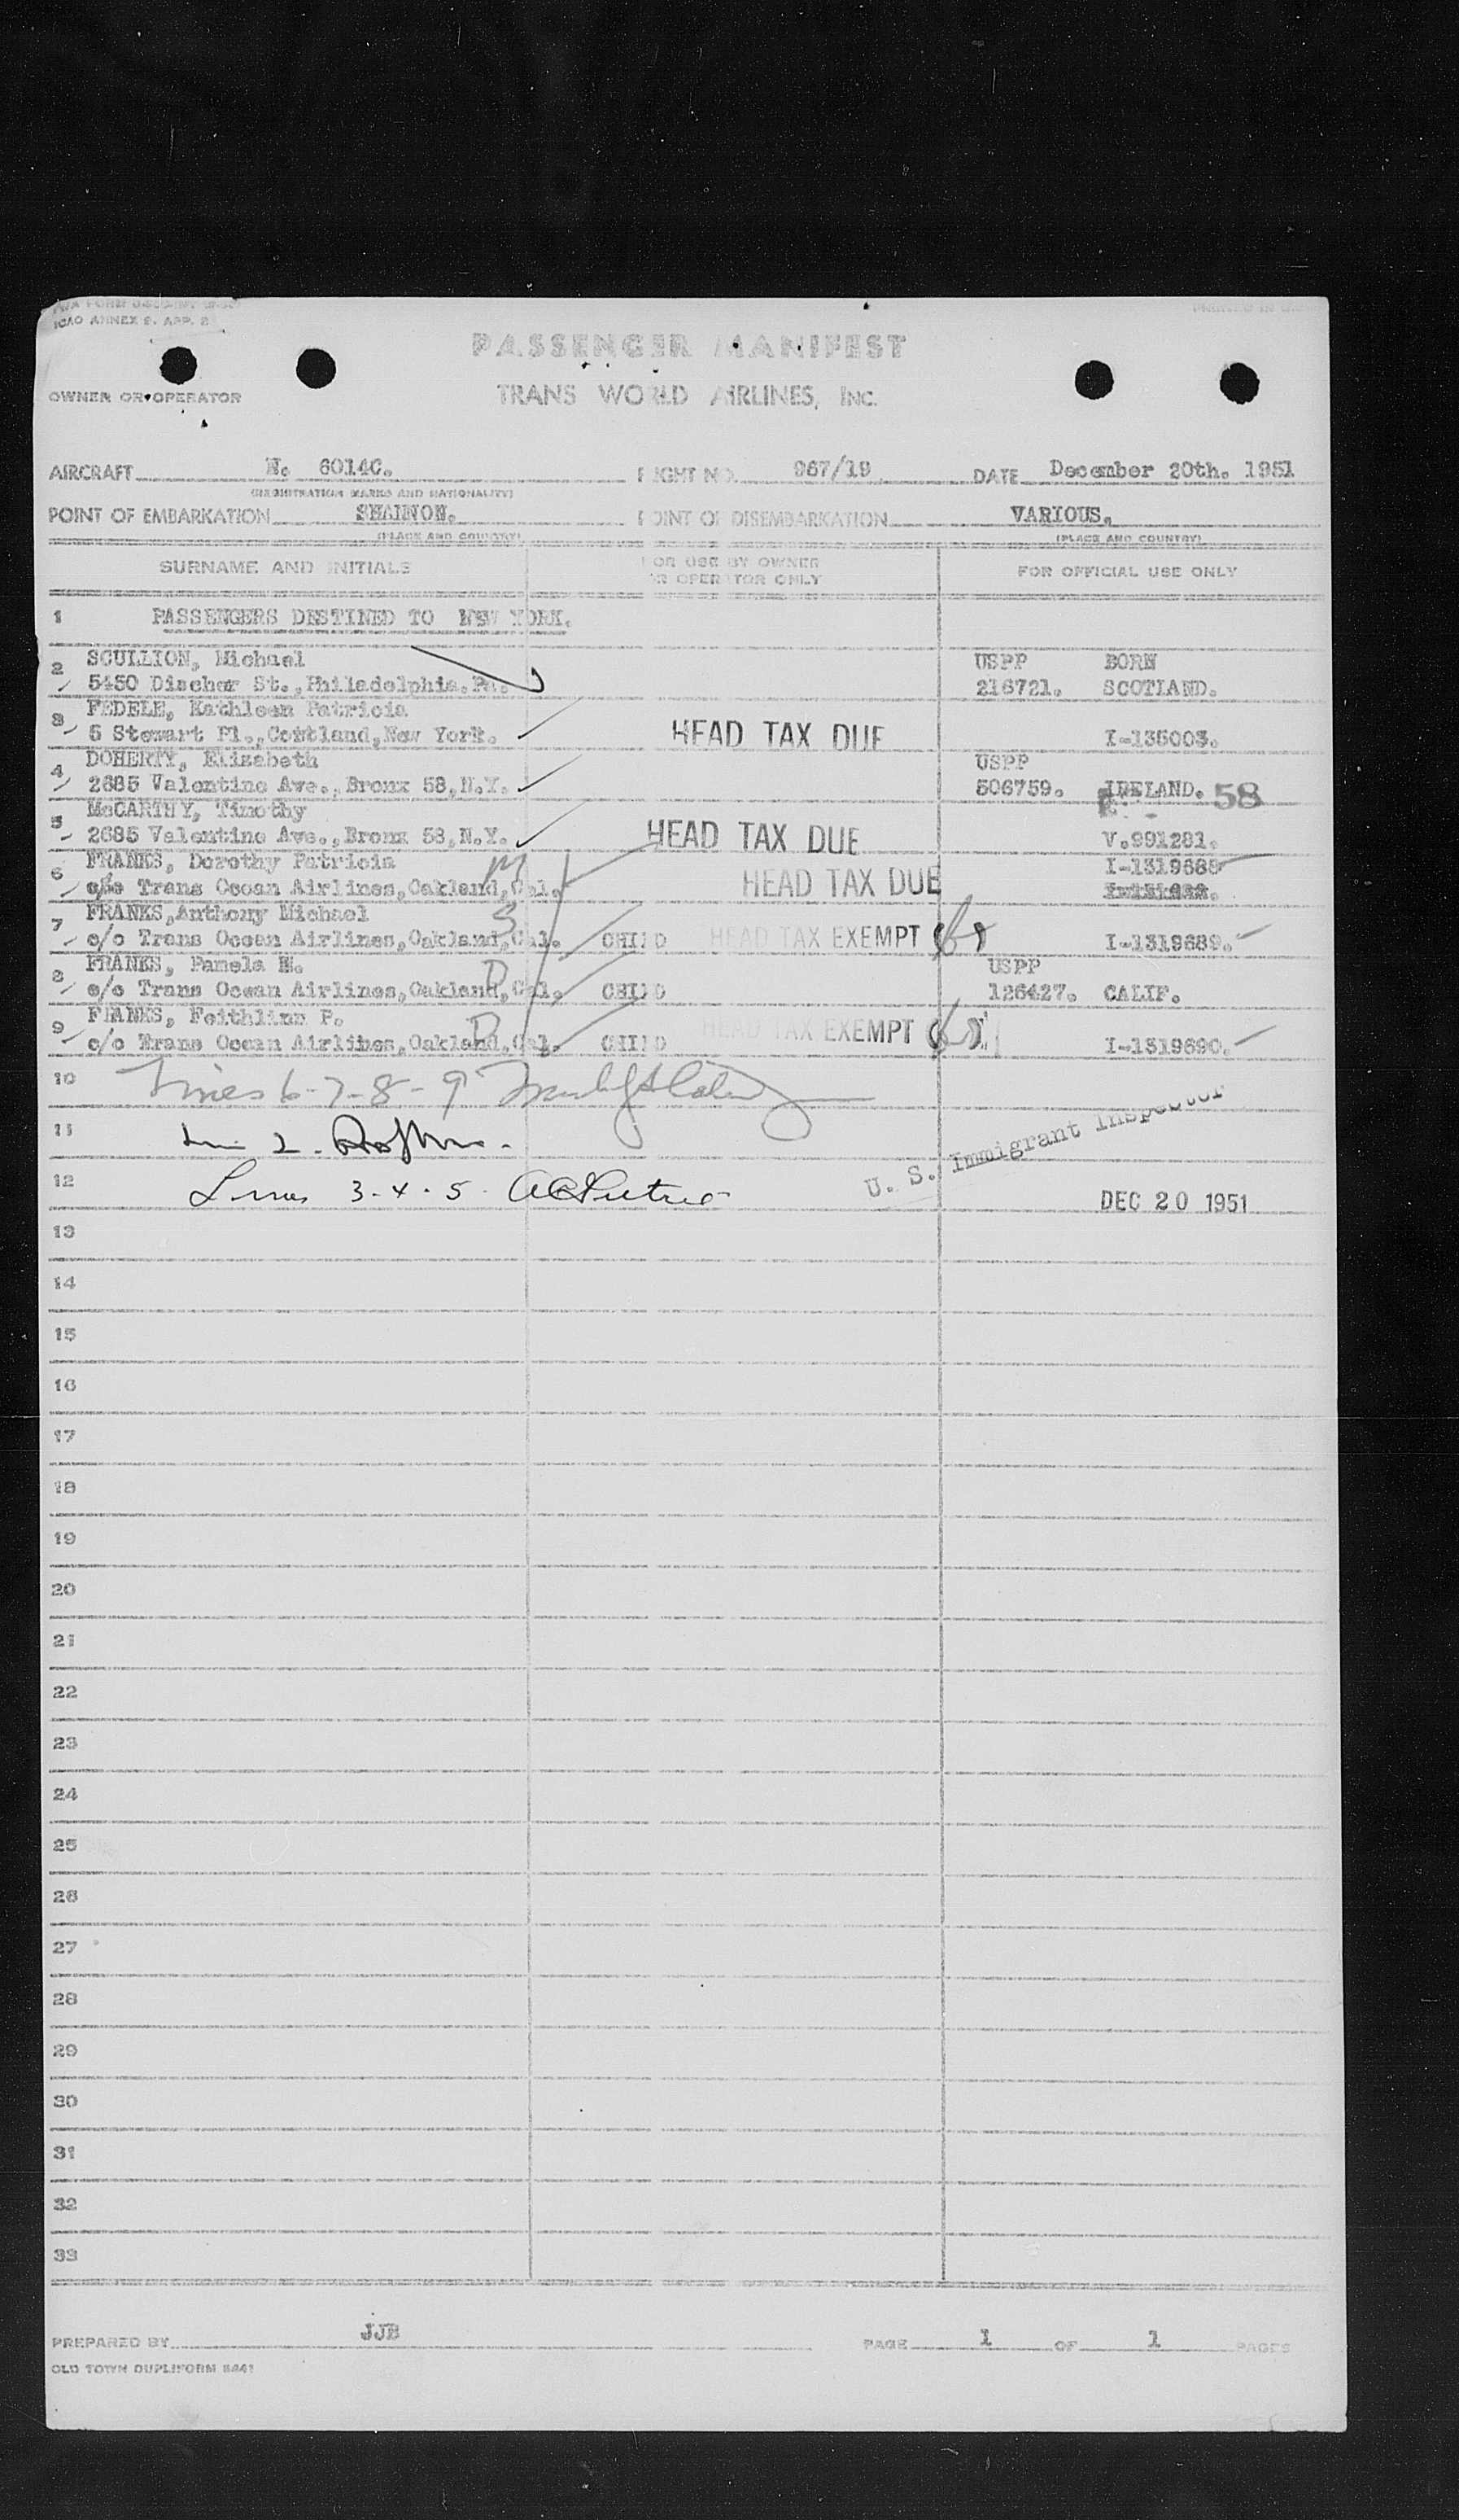 ICAO ANNEX 9. APP. 2
PASSENGER MANIFEST
OWNER OR OPERATOR TRANS WORLD AIRLINES, INC.
AIRCRAFT N. 6014C. FLIGHT NO. 967/19 DATE December 20th. 1951
(REGISTRATION MARKS AND NATIONALITY)
POINT OF EMBARKATION SHANNON. POINT OF DISEMBARKATION VARIOUS.
(PLACE AND COUNTRY) (PLACE AND COUNTRY)
SURNAME AND INITIALS FOR USE BY OWNER OR OPERATOR ONLY FOR OFFICIAL USE ONLY
1 PASSENGERS DESTINED TO NEW YORK.
2 SCULLION, Michael USPP BORN
5450 Discher St., Philadelphia. Pa. 216721. SCOTLAND.
3 FEDELE, Kathleen Patricia
6 Stewart Pl., Cortland, New York. HEAD TAX DUE I-135003.
4 DOHERTY, Elizabeth USPP
2685 Valentine Ave., Bronx 58, N.Y. 506759. IRELAND. 58
5 McCARTHY, Timothy
2685 Valentine Ave., Bronx 58, N.Y. HEAD TAX DUE V.991281.
6 FRANKS, Dorothy Patricia M I-1319688
c/o Trans Ocean Airlines, Oakland, Cal. HEAD TAX DUE
7 FRANKS, Anthony Michael S
c/o Trans Ocean Airlines, Oakland, Cal. CHILD HEAD TAX EXEMPT I-1319689.
8 FRANKS, Pamela M. D USPP
c/o Trans Ocean Airlines, Oakland, Cal. CHILD 126427. CALIF.
9 FRANKS, Feithlinn P. D
c/o Trans Ocean Airlines, Oakland, Cal. CHILD HEAD TAX EXEMPT I-1319690.
10 Lines 6-7-8-9
11 2.
U. S. Immigrant Inspector
12 Lines 3-4-5
DEC 20 1951
13
14
15
16
17
18
19
20
21
22
23
24
25
26
27
28
29
30
31
32
33
PREPARED BY JJB PAGE 1 OF 1 PAGES
OLD TOWN DUPLIFORM 8441